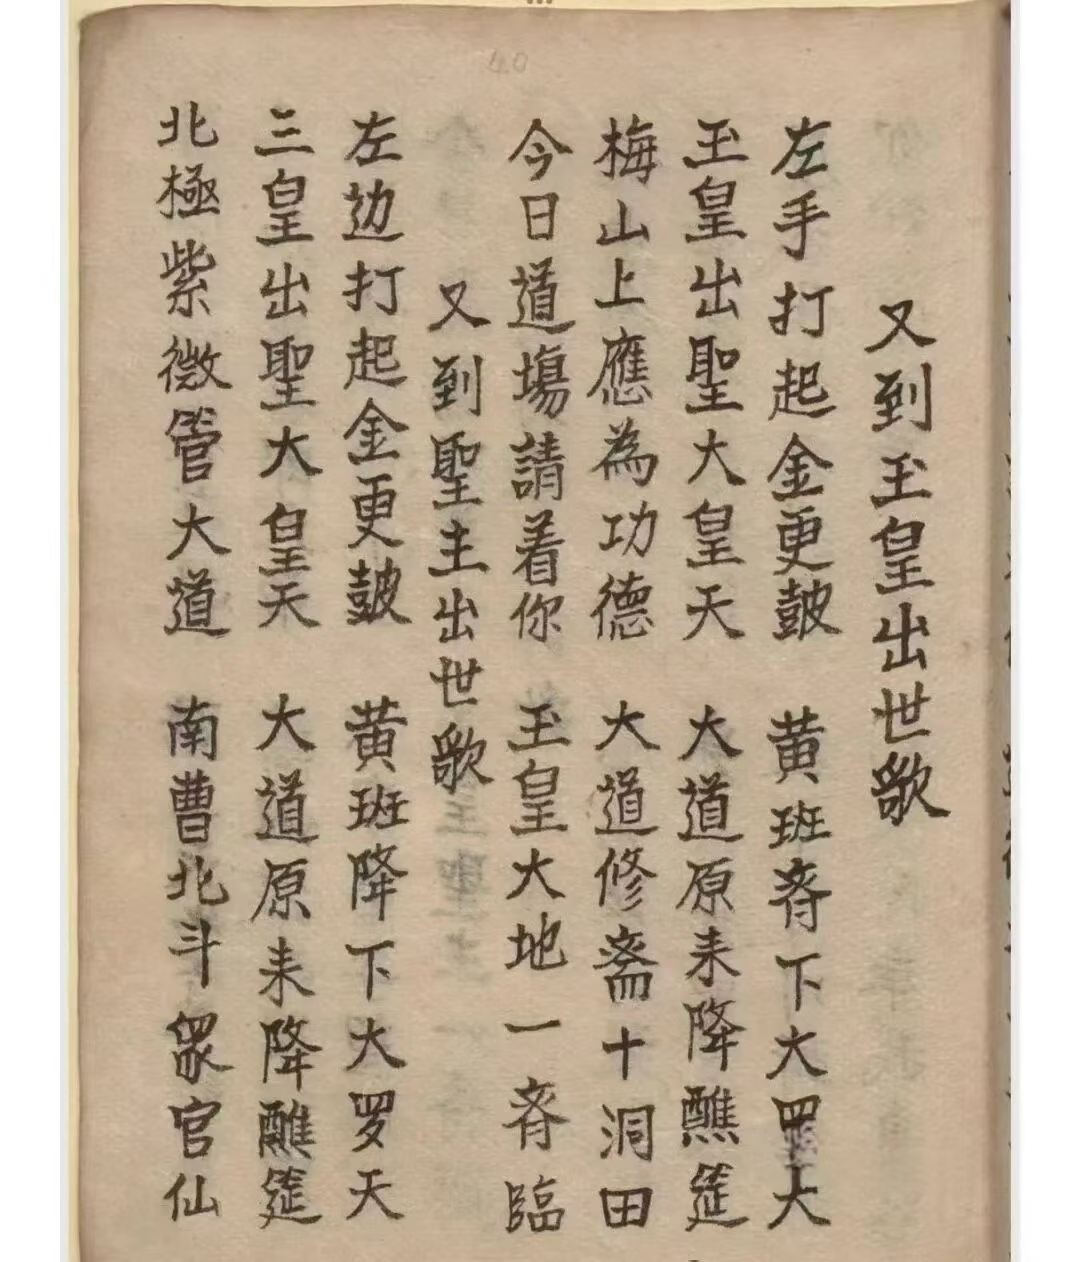 40
又到玉皇出世歌
左手打起金更皷 黄班齐下大罗大
玉皇出聖大皇天 大道原来降醮筵
梅山上應為功德 大道修斋十洞田
今日道塲請着你 玉皇大地一齐臨
又到聖主出世歌
左边打起金更皷 黄班降下大罗天
三皇出聖大皇天 大道原来降醮筵
北極紫微管大道 南曹北斗眾官仙